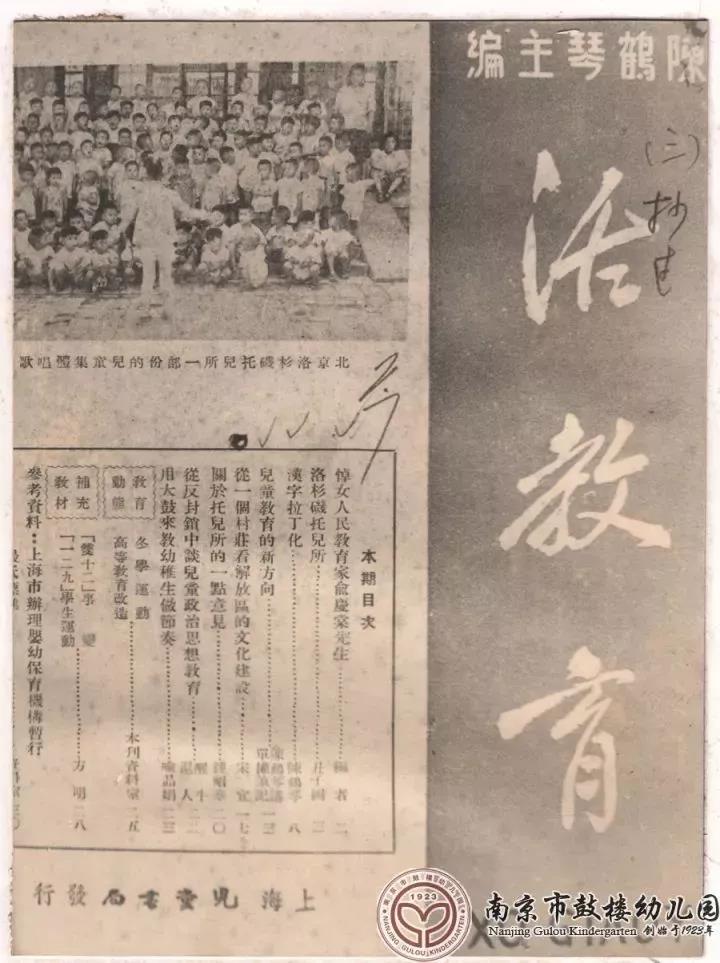 陳鶴琴主編
活教育
北京洛杉磯托兒所一部份的兒童集體唱歌
本期目次
悼女人民教育家俞慶棠先生……編者 二
洛杉磯托兒所……
漢字拉丁化……陳鶴琴 八
兒童教育的新方向……陳鶴琴講
從一個村莊看解放區的文化建設……宋 一七
關於托兒所的一點意見……二〇
從反封鎖中談兒童政治思想教育……
用大鼓來教幼稚生做節奏……喻品娟 二三
教育動態
冬學運動
高等教育改造……本刊資料室 二五
補充教材
「雙十二」事變
「一二九」學生運動……方明 二八
參考資料：上海市辦理嬰幼保育機構暫行
上海兒童書局發行
1923
NANJING GULOU KINDERGARTEN
南京市鼓楼幼儿园
Nanjing Gulou Kindergarten 创始于1923年